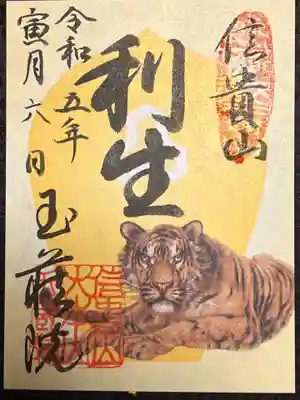 信貴山
利生
令和五年
寅月六日
玉蔵院